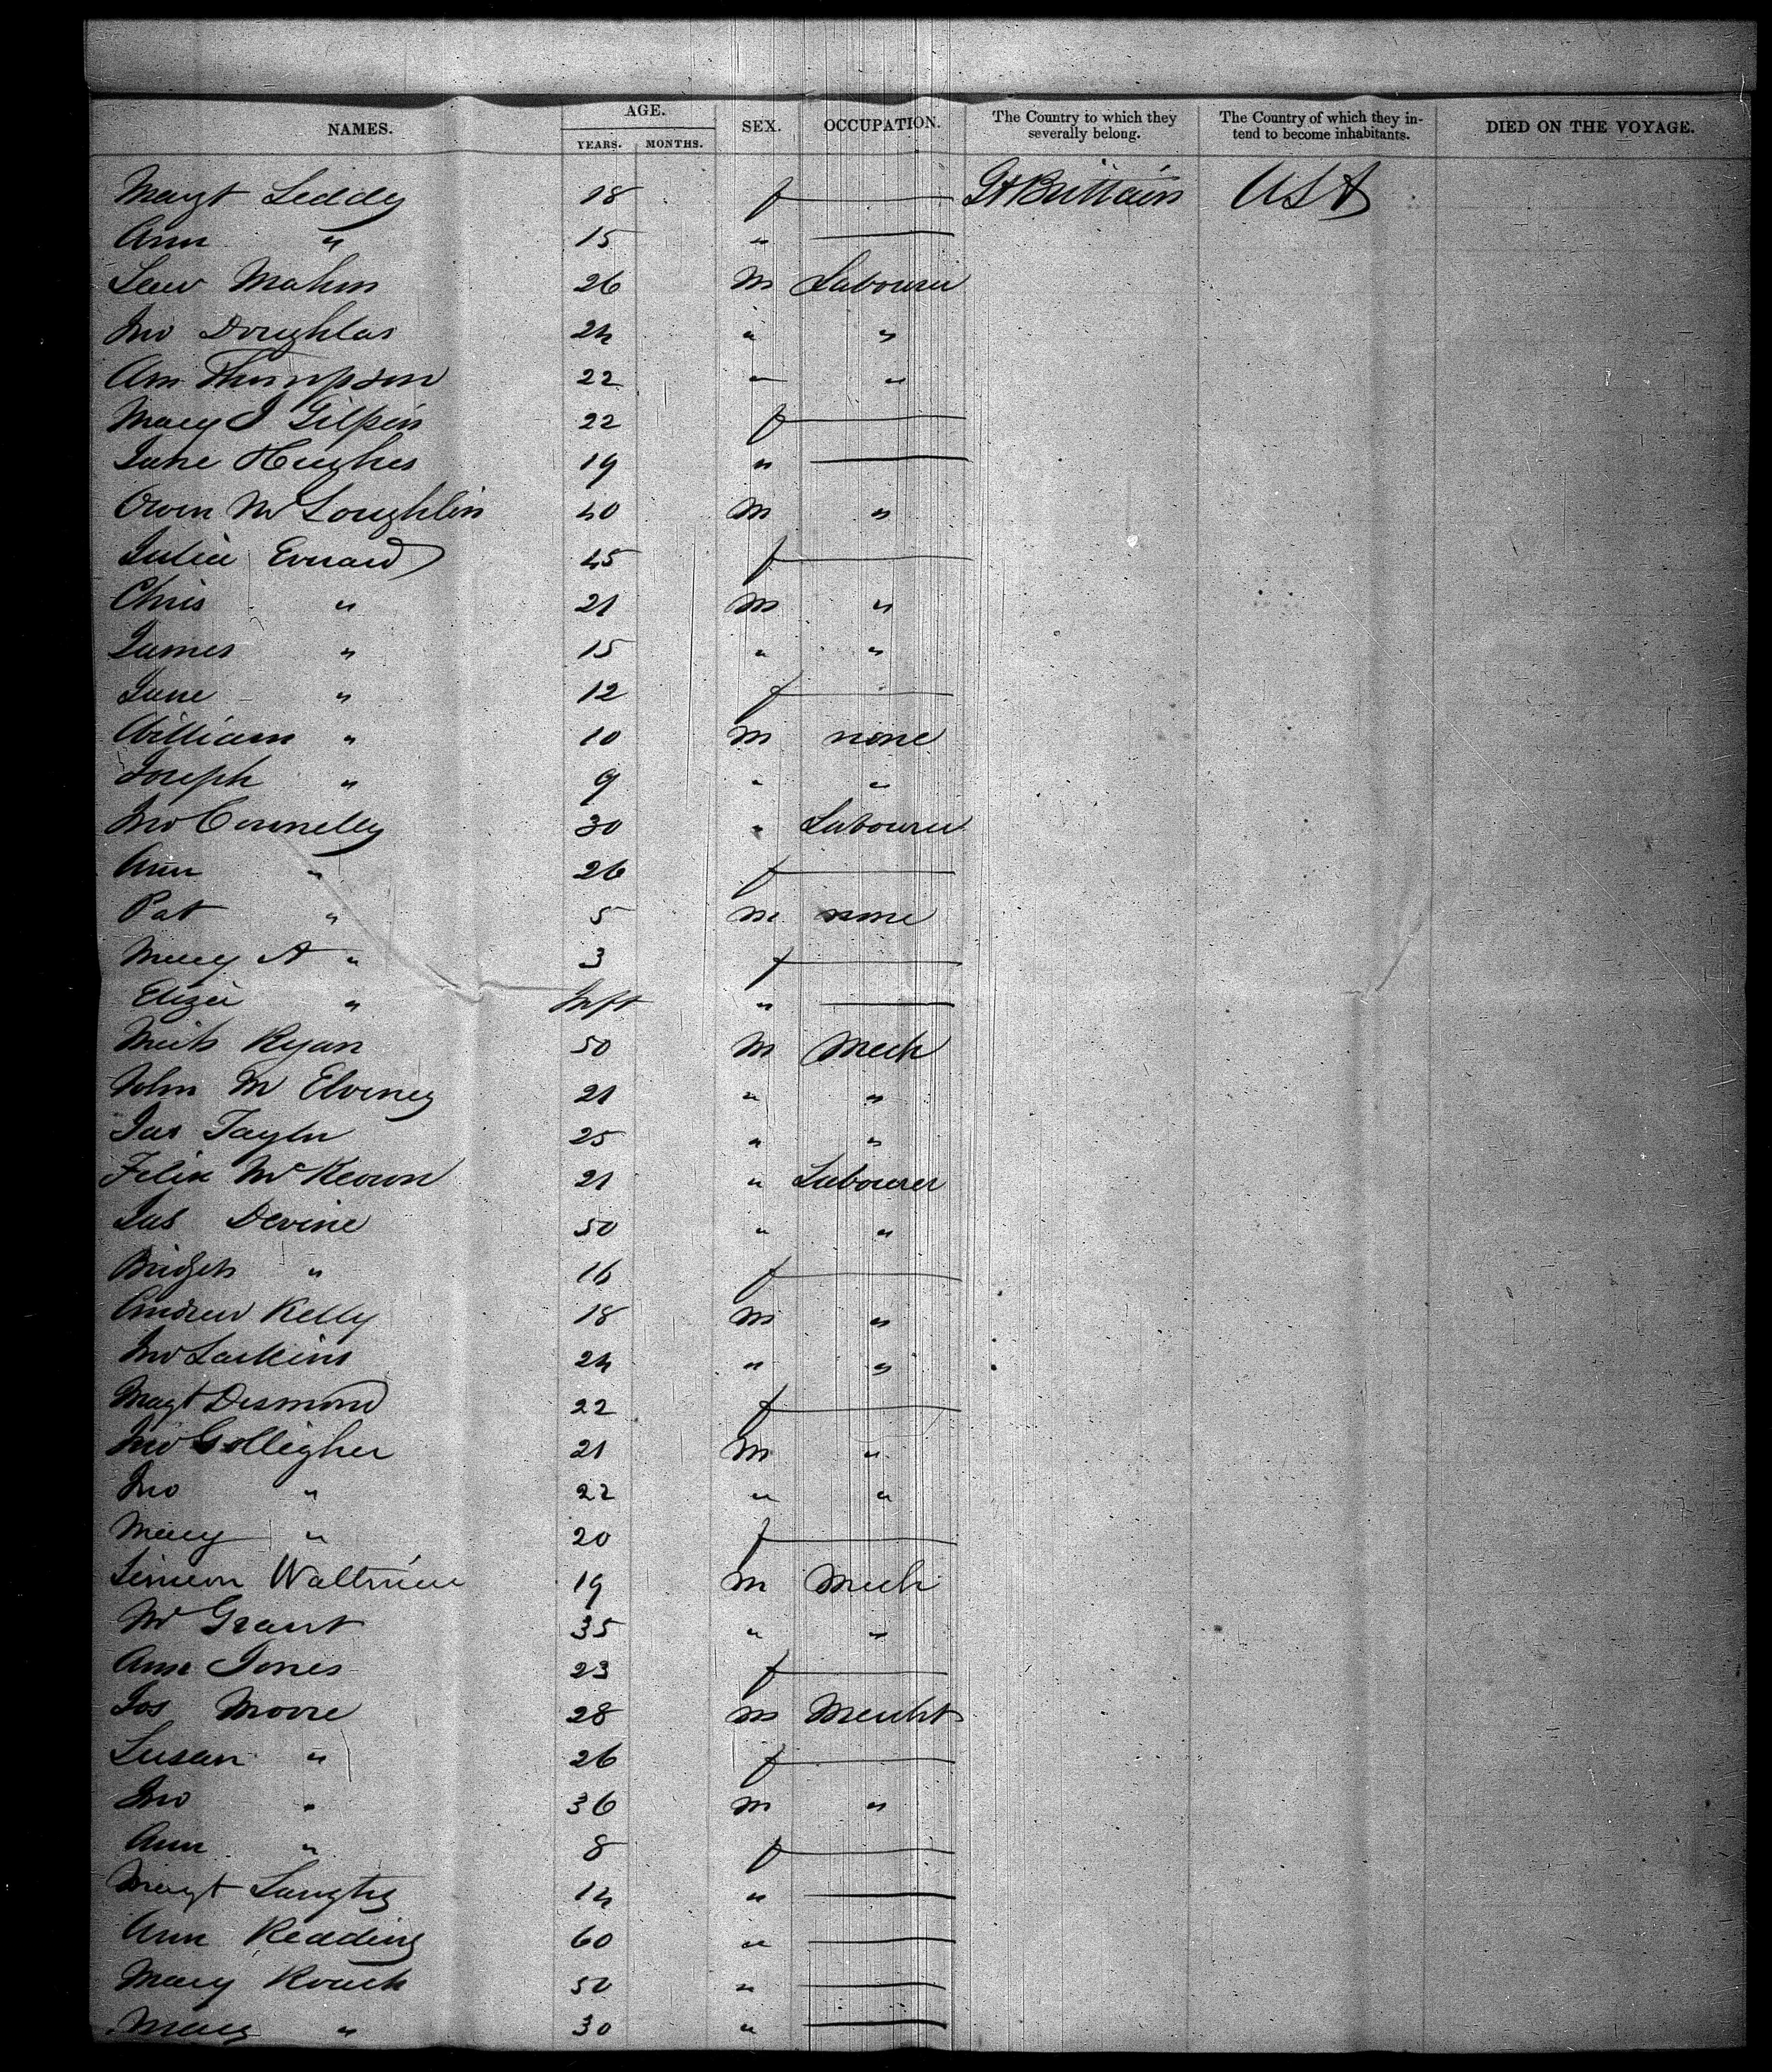 NAMES. AGE. YEARS. MONTHS. SEX. OCCUPATION. The Country to which they severally belong. The Country of which they intend to become inhabitants. DIED ON THE VOYAGE.
Margt Leddy 18 f — Gt Brittain USA
Ann " 15 " —
Mahon 26 M Labourer
Jno Doughlas 24 " "
Thompson 22 " "
Mary J Gilpin 22 f —
Jane Hughes 19 " —
Owen McLoughlin 40 M "
Julia Evrard 45 f —
Chris " 21 M "
James " 15 " "
Jane " 12 f —
William " 10 M none
Joseph " 9 " "
Jno Connelly 30 " Labourer
Ann " 26 f —
Pat " 5 M none
Mary A " 3 f —
Eliza " Inft " —
Ryan 50 M Mech
John Mc Elveney 21 " "
Jas Taylor 25 " "
Felix McKeown 21 " Labourer
Jas Devine 50 " "
Bridget " 16 f —
Andrew Kelly 18 M "
Jno Larkins 24 " "
Magt Desmond 22 f —
Jno Golligher 21 M "
Jno " 22 " "
Mary " 20 f —
Simeon 19 M Mech
Grant 35 " "
Ann Jones 23 f —
Jos Moore 28 M Mercht
Susan " 26 f —
Jno " 36 M "
Ann " 8 f —
Margt 14 " —
Ann Redding 60 " —
Mary 50 " —
Mary " 30 " —